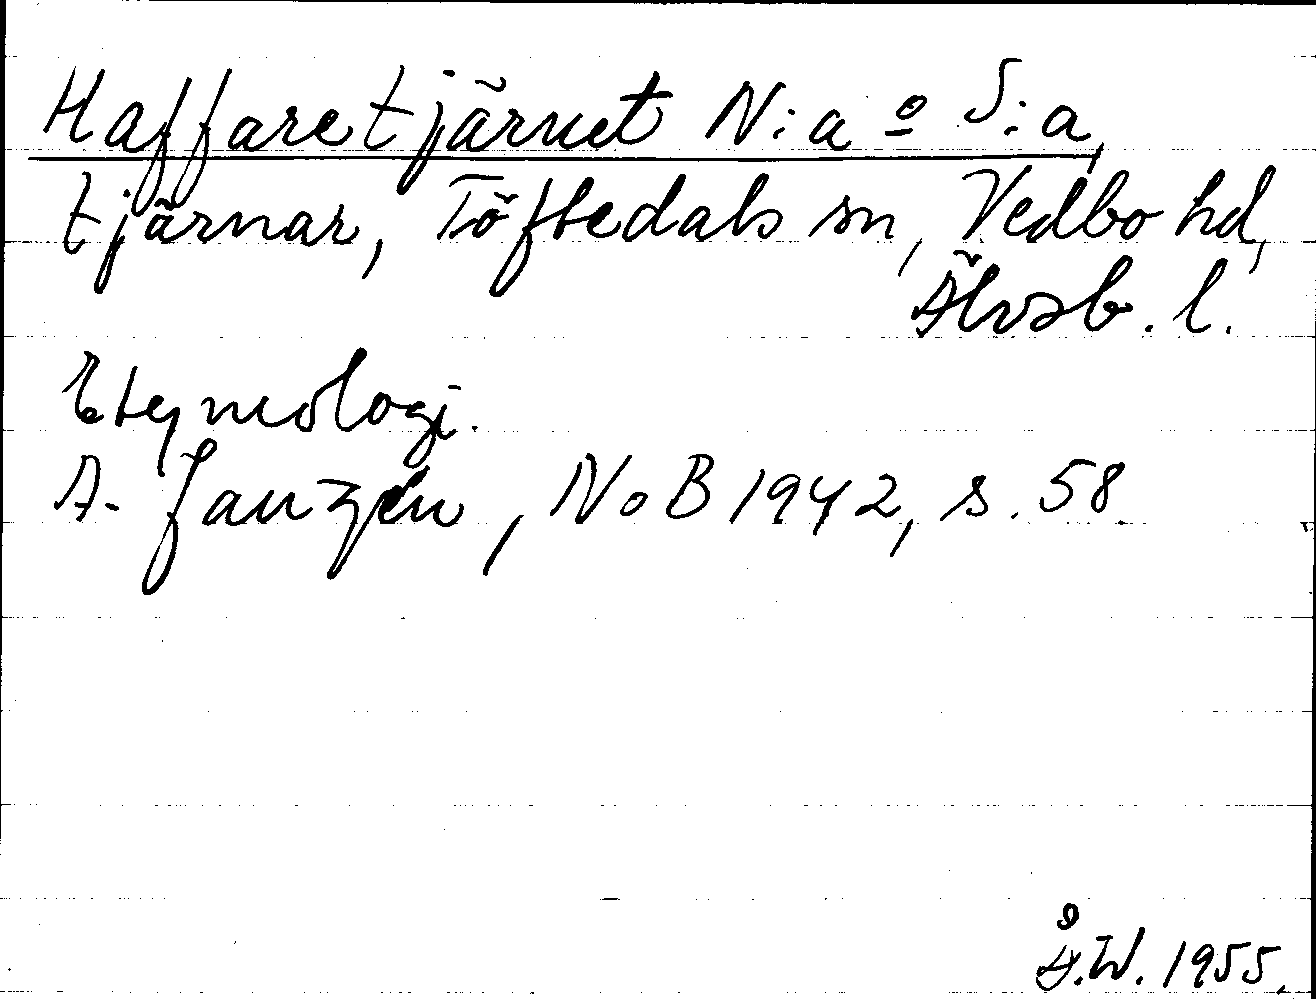 Haffaretjärnet N:a o S:a,
tjärnar, Töftedals sn, Vedbo hd,
Älvsb. l.
Etymologi.
A. Janzén, NoB 1942, s. 58.
Å.W. 1955.